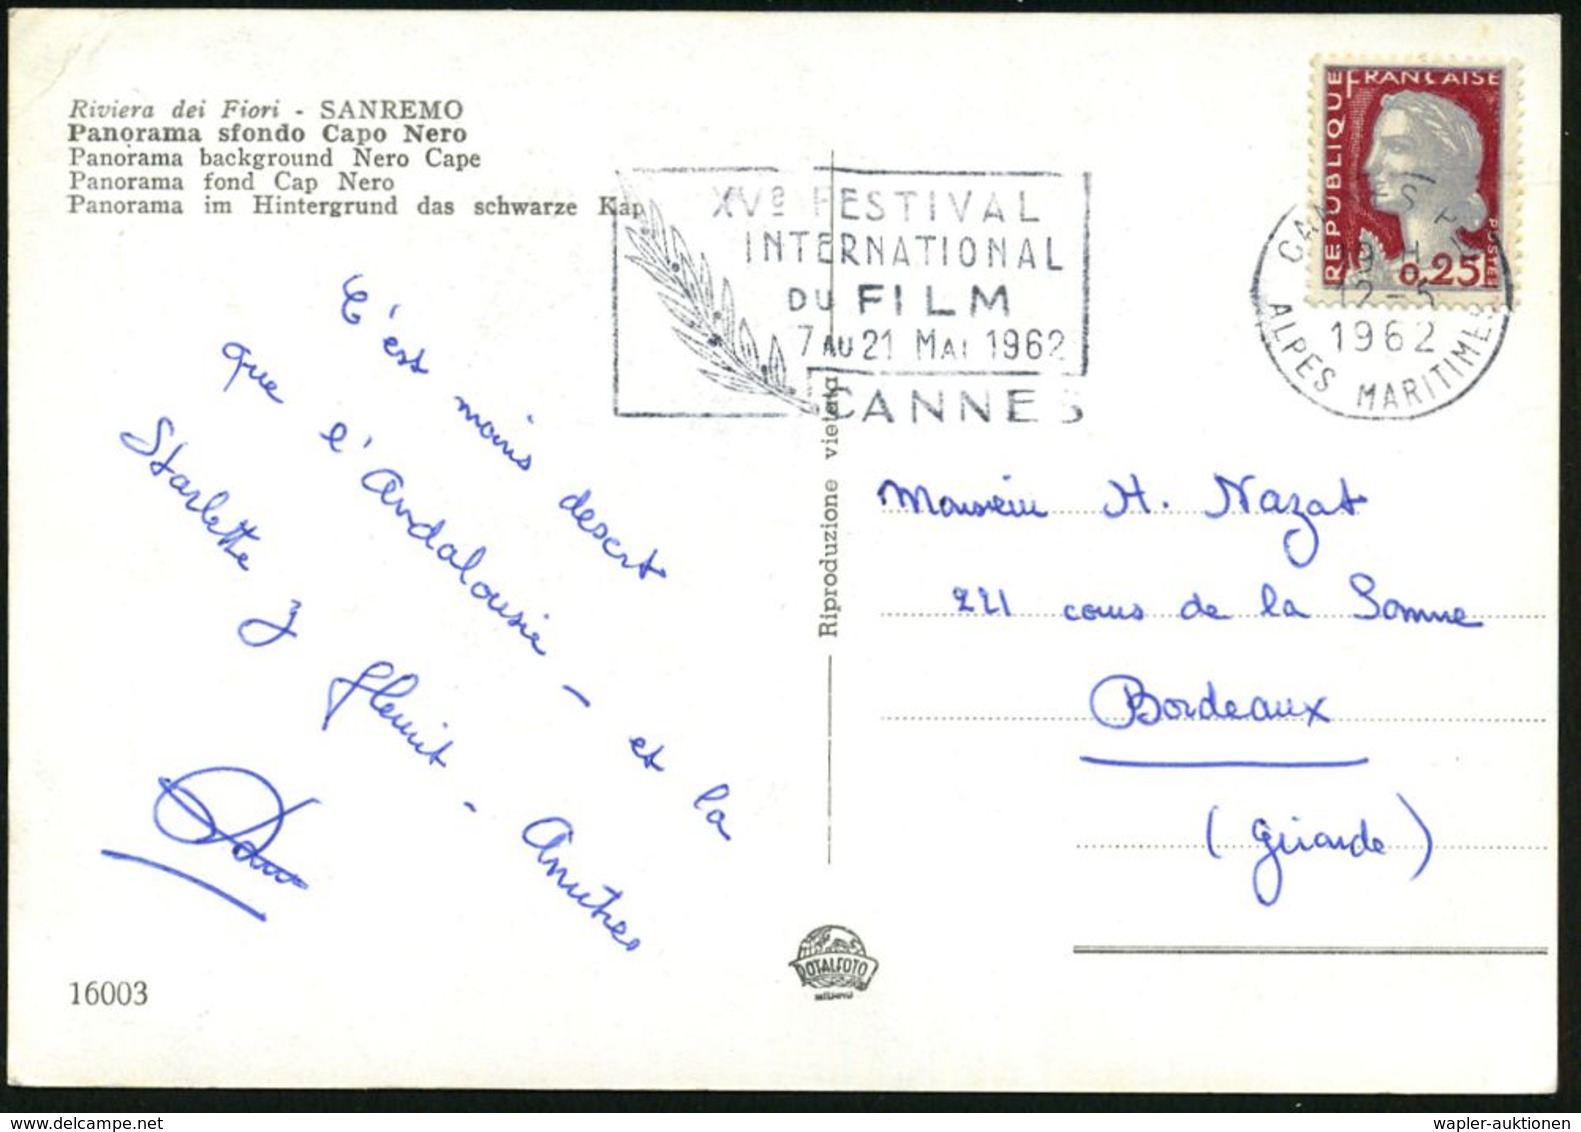 Riviera dei Fiori - SANREMO
Panorama sfondo Capo Nero
Panorama background Nero Cape
Panorama fond Cap Nero
Panorama im Hintergrund das schwarze Kap
XVe FESTIVAL
INTERNATIONAL
DU FILM
7 AU 21 MAI 1962
CANNES
REPUBLIQUE FRANÇAISE
POSTES
0,25
12-5
1962
ALPES MARITIMES
C'est moins desert
que l'Andalousie - et la
Starlette y fleurit - Amitiés
Riproduzione vietata
Monsieur H. Nazat
221 cours de la Somme
Bordeaux
(Gironde)
ROTALFOTO
MILANO
16003
wapler-auktionen